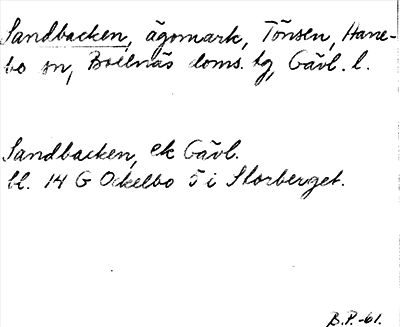 Sandbacken, ägomark, Tönsen, Hane-
bo sn, Bollnäs doms. tg, Gävl. l.
Sandbacken, ek Gävl.
bl. 14 G Ockelbo 5 i Storberget.
B.P.-61.